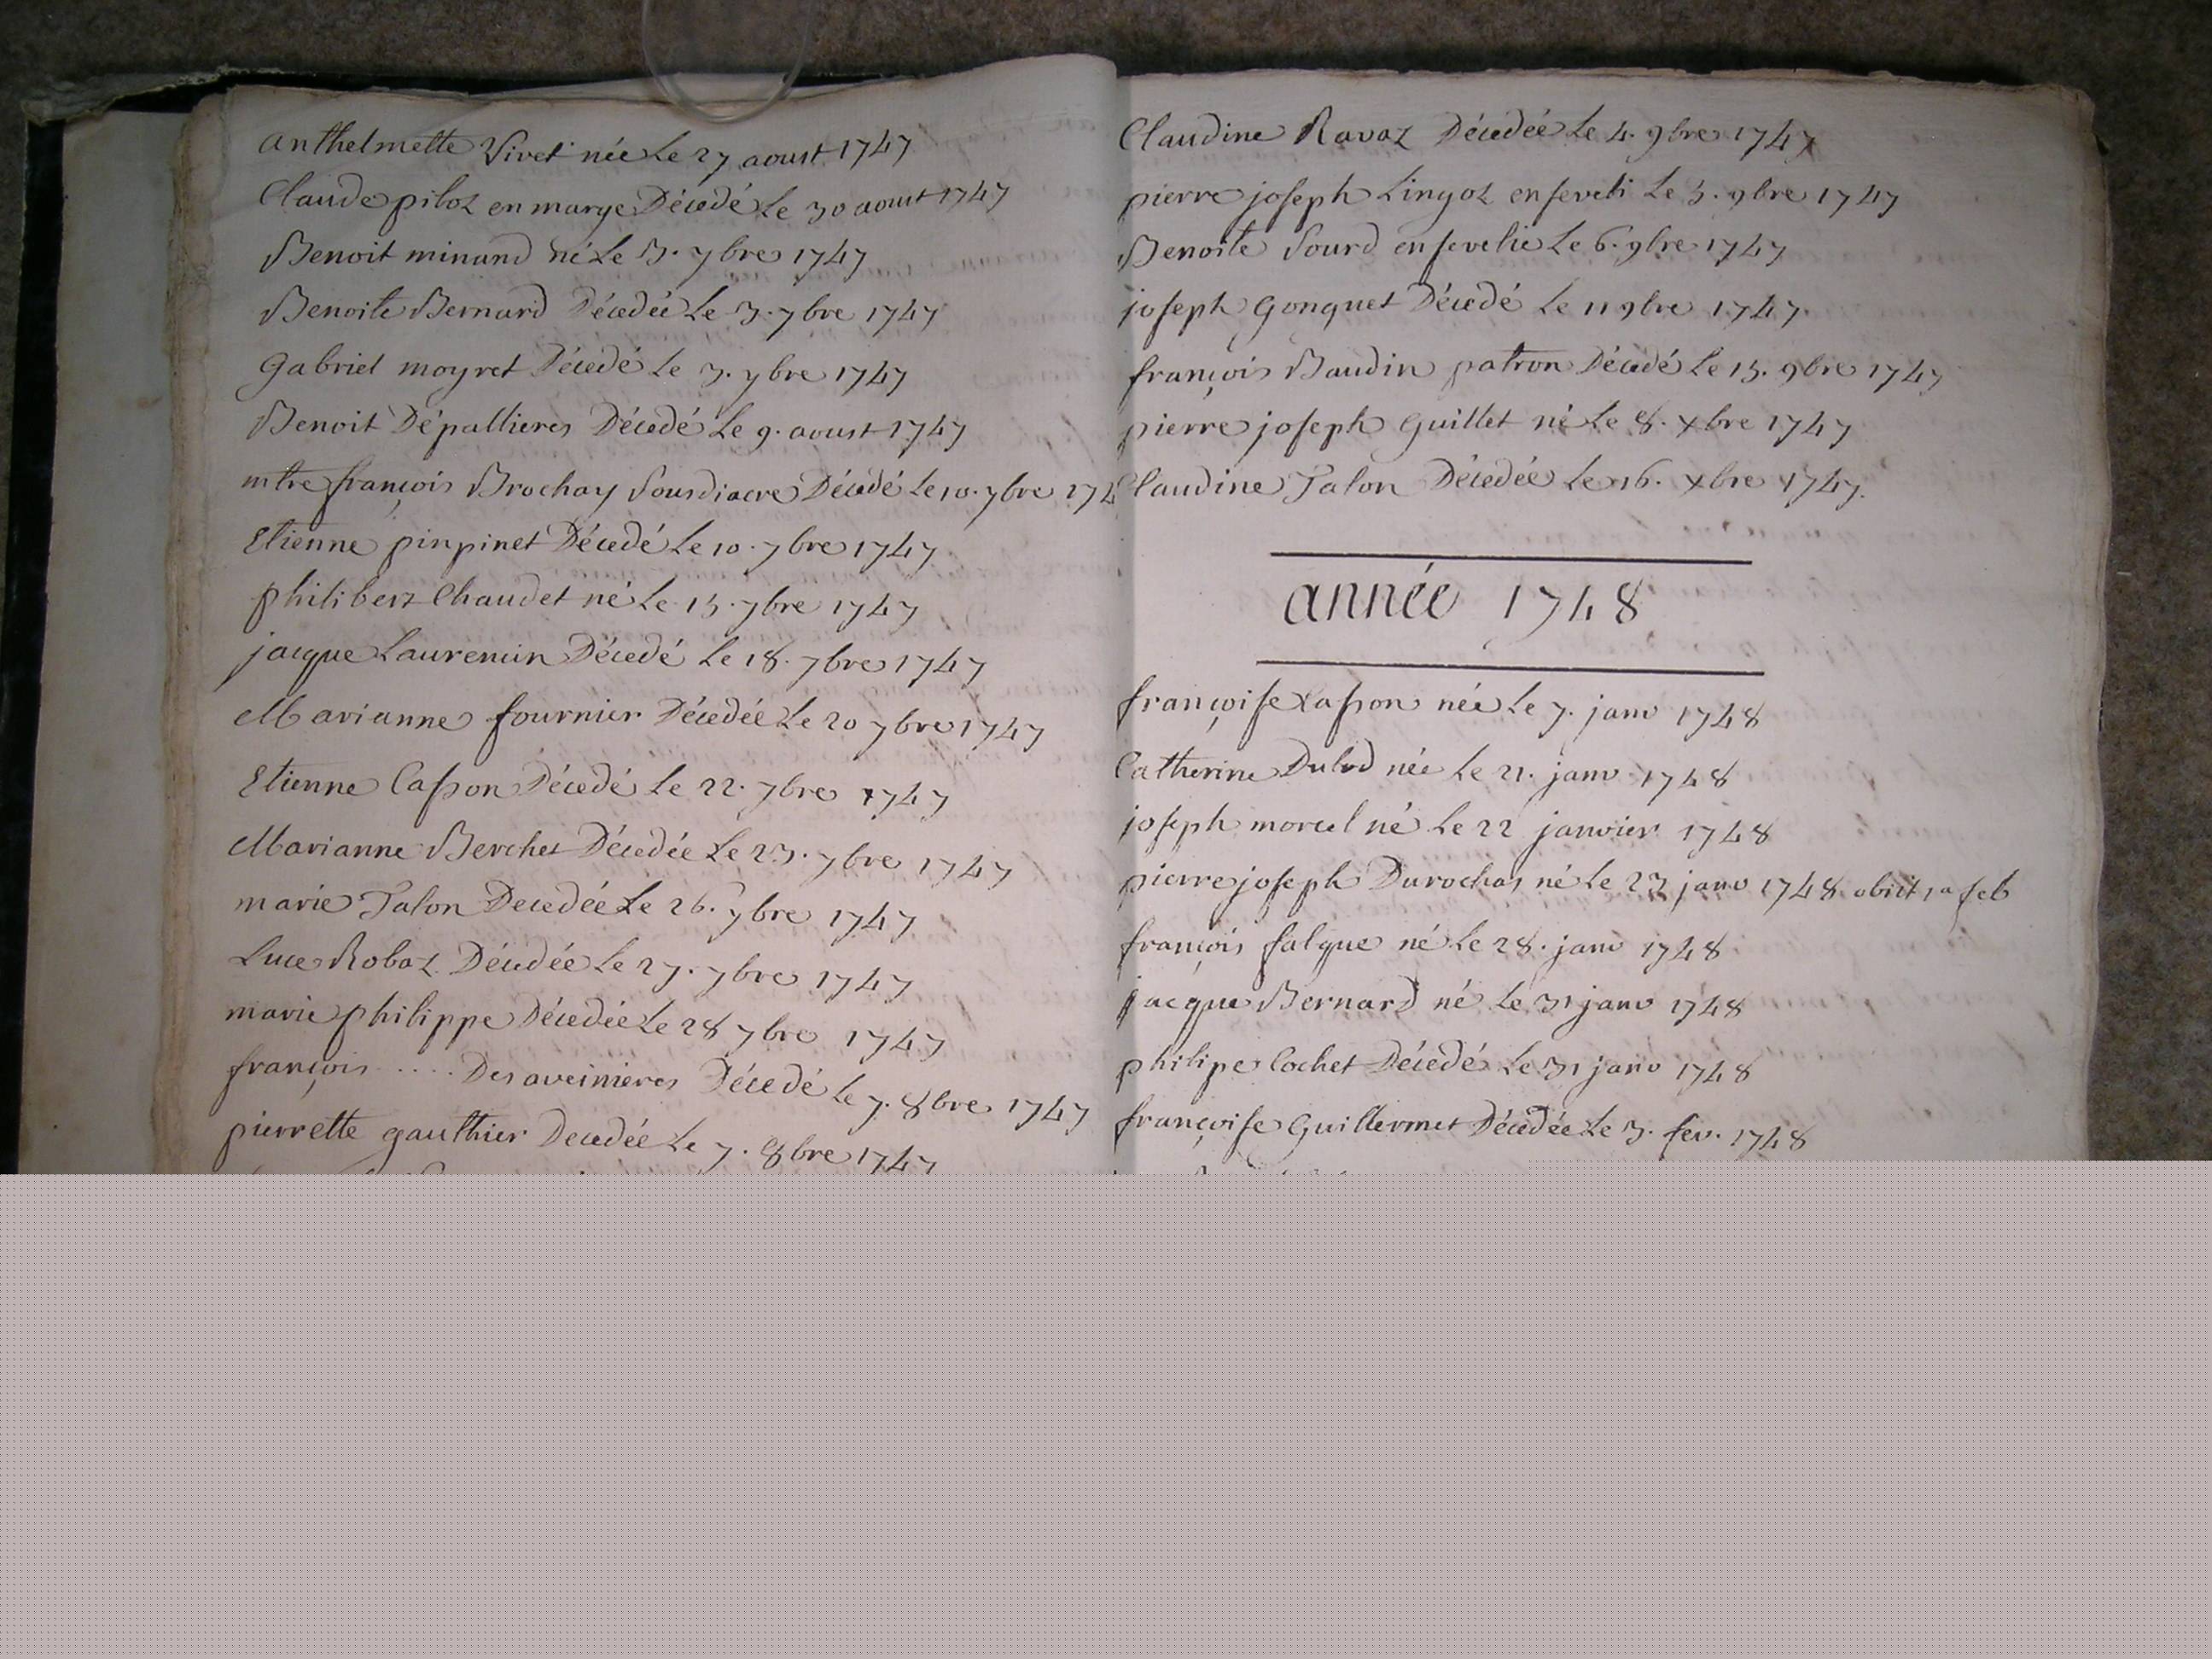 anthelmette Vivet née Le 27 aoust 1747
Claude piloz en marge Décedé Le 30 aoust 1747
Benoit minand né Le 3. 7bre 1747
Benoite Bernard Décedée Le 3. 7bre 1747
Gabriel moyret Décedé Le 3. 7bre 1747
Benoit Dépallieres Décedé Le 9. aoust 1747
mtre françois Brochay Sousdiacre Décedé Le 10. 7bre 174
Etienne pinpinet Décedé Le 10. 7bre 1747
philibert Chaudet né Le 15. 7bre 1747
jacque Laurencin Décedé Le 18. 7bre 1747
Marianne fournier Décedée Le 20 7bre 1747
Etienne Casson Décedé Le 22. 7bre 1747
Marianne Berchet Décedée Le 23. 7bre 1747
marie Talon Decedée Le 26. 7bre 1747
Luce Robaz Décedée Le 27. 7bre 1747
marie philippe Décedée Le 28 7bre 1747
françois ..... Desaveinieres Décedé Le 7. 8bre 1747
pierrette gauthier Decedée Le 7. 8bre 1747
Claudine Ravaz Décedée Le 4. 9bre 1747
pierre joseph Lingoz enseveli Le 5. 9bre 1747
Benoite Sourd ensevelie Le 6. 9bre 1747
joseph Gonguet Décedé Le 11 9bre 1747.
françois Baudin patron Décedé Le 15. 9bre 1747
pierre joseph Guillet né Le 8. xbre 1747
Claudine Talon Décedée Le 16. xbre 1747.
année 1748
françoise Casson née Le 7. janv 1748
Catherine née Le 21. janv 1748
joseph morcel né Le 22 janvier 1748
pierre joseph Durochas né Le 23 janv 1748 obiit 1a feb
françois falque né Le 28. janv 1748
jacque Bernard né Le 31 janv 1748
philipe Cochet Décedé Le 31 janv 1748
françoise Guillermet Décedée Le 3. fev. 1748